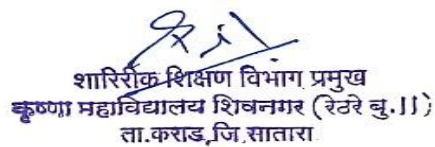 शारिरीक शिक्षण विभाग प्रमुख
कृष्णा महाविद्यालय शिवनगर (रेठरे बु.॥)
ता.कराड,जि.सातारा